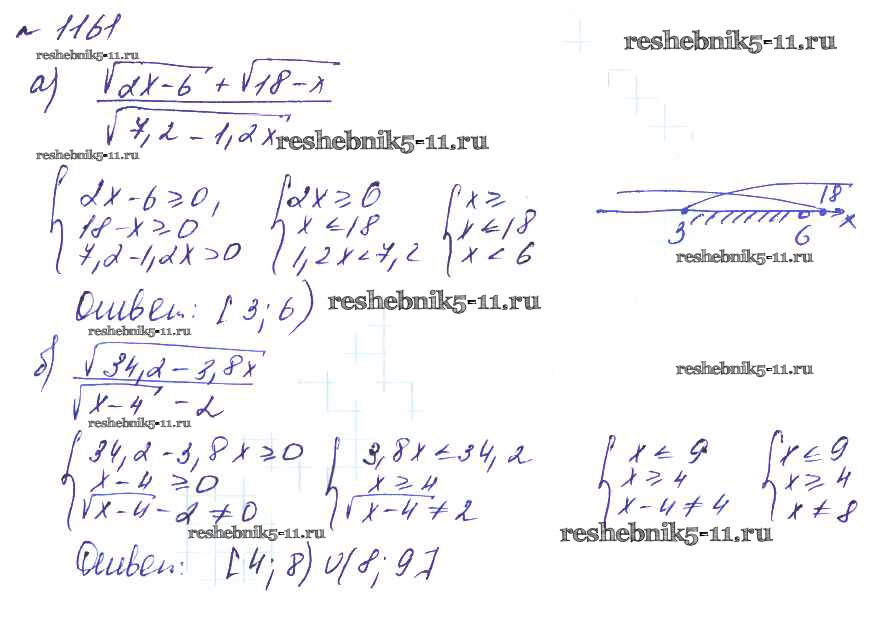 № 1161
reshebnik5-11.ru
reshebnik5-11.ru
а) (√(2x-6) + √(18-x)) / √(7,2-1,2x)
reshebnik5-11.ru
reshebnik5-11.ru
{ 2x-6≥0, { 2x≥0 { x≥
18-x≥0 x≤18 x≤18
7,2-1,2x>0 1,2x<7,2 x<6
3 6 18 x
reshebnik5-11.ru
Ответ: [3;6)
reshebnik5-11.ru
reshebnik5-11.ru
б) √(34,2-3,8x) / (√(x-4) -2)
reshebnik5-11.ru
reshebnik5-11.ru
{ 34,2-3,8x≥0 { 3,8x≤34,2 { x≤9 { x≤9
x-4≥0 x≥4 x≥4 x≥4
√(x-4) -2≠0 √(x-4) ≠2 x-4≠4 x≠8
reshebnik5-11.ru
reshebnik5-11.ru
Ответ: [4;8)∪(8;9]